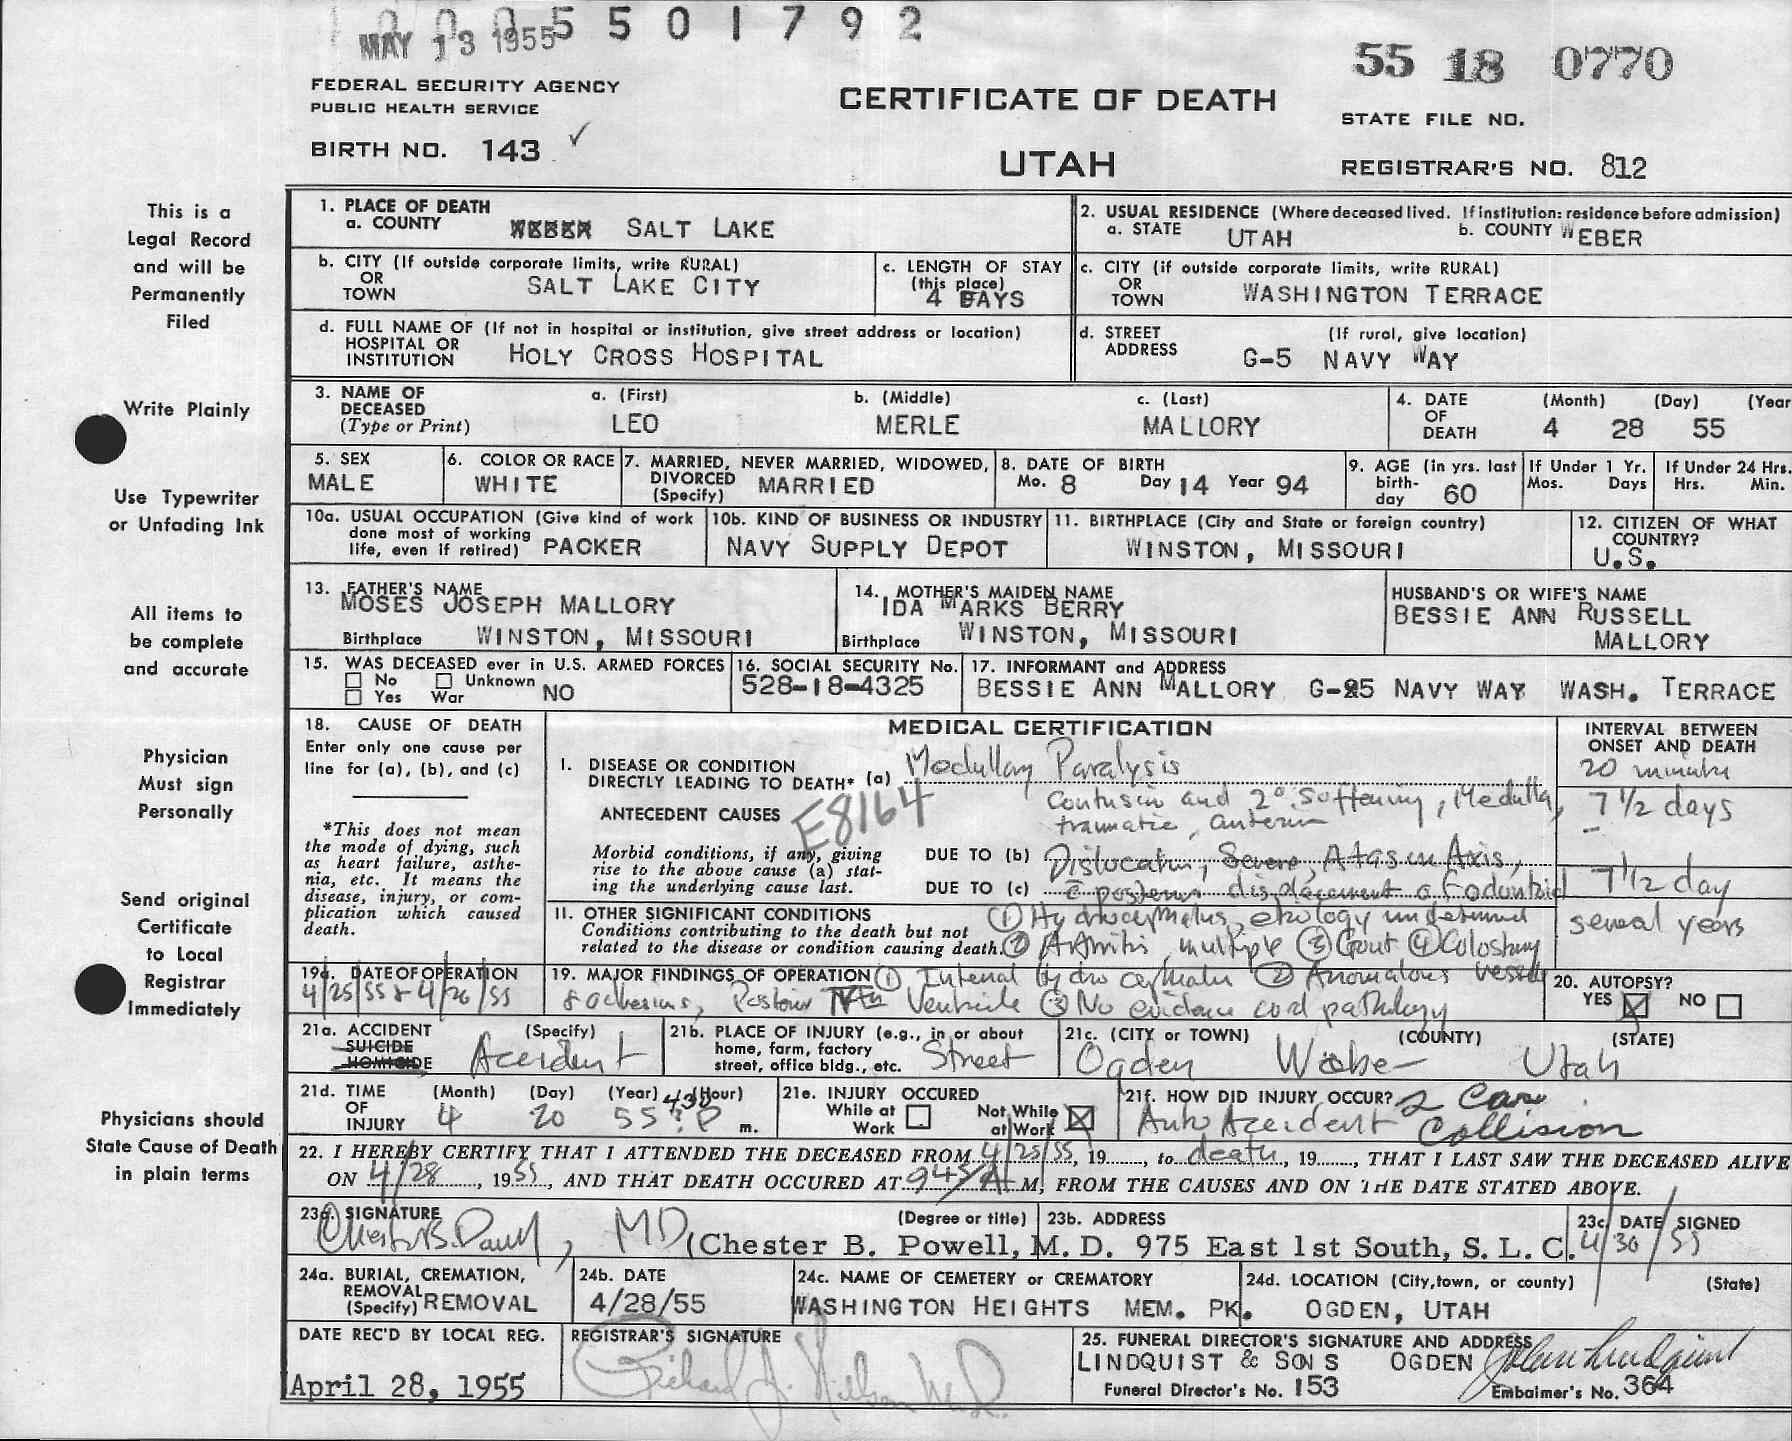 0 0 0 5 5 0 1 7 9 2
MAY 13 1955
55 18 0770
FEDERAL SECURITY AGENCY
PUBLIC HEALTH SERVICE
CERTIFICATE OF DEATH
STATE FILE NO.
BIRTH NO. 143 ✓
UTAH
REGISTRAR'S NO. 812
This is a
Legal Record
and will be
Permanently
Filed
Write Plainly
Use Typewriter
or Unfading Ink
All items to
be complete
and accurate
Physician
Must sign
Personally
Send original
Certificate
to Local
Registrar
Immediately
Physicians should
State Cause of Death
in plain terms
1. PLACE OF DEATH
a. COUNTY WEBER SALT LAKE
2. USUAL RESIDENCE (Where deceased lived. If institution: residence before admission)
a. STATE UTAH b. COUNTY WEBER
b. CITY (If outside corporate limits, write RURAL)
OR
TOWN SALT LAKE CITY
c. LENGTH OF STAY
(this place)
4 DAYS
c. CITY (if outside corporate limits, write RURAL)
OR
TOWN WASHINGTON TERRACE
d. FULL NAME OF (If not in hospital or institution, give street address or location)
HOSPITAL OR
INSTITUTION HOLY CROSS HOSPITAL
d. STREET (If rural, give location)
ADDRESS G-5 NAVY WAY
3. NAME OF
DECEASED
(Type or Print)
a. (First) b. (Middle) c. (Last)
LEO MERLE MALLORY
4. DATE (Month) (Day) (Year
OF
DEATH 4 28 55
5. SEX
MALE
6. COLOR OR RACE
WHITE
7. MARRIED, NEVER MARRIED, WIDOWED,
DIVORCED
(Specify) MARRIED
8. DATE OF BIRTH
Mo. 8 Day 14 Year 94
9. AGE (in yrs. last
birth-
day 60
If Under 1 Yr.
Mos. Days
If Under 24 Hrs.
Hrs. Min.
10a. USUAL OCCUPATION (Give kind of work
done most of working
life, even if retired) PACKER
10b. KIND OF BUSINESS OR INDUSTRY
NAVY SUPPLY DEPOT
11. BIRTHPLACE (City and State or foreign country)
WINSTON, MISSOURI
12. CITIZEN OF WHAT
COUNTRY?
U.S.
13. FATHER'S NAME
MOSES JOSEPH MALLORY
Birthplace WINSTON, MISSOURI
14. MOTHER'S MAIDEN NAME
IDA MARKS BERRY
Birthplace WINSTON, MISSOURI
HUSBAND'S OR WIFE'S NAME
BESSIE ANN RUSSELL
MALLORY
15. WAS DECEASED ever in U.S. ARMED FORCES
No Unknown
Yes War NO
16. SOCIAL SECURITY No.
528-18-4325
17. INFORMANT and ADDRESS
BESSIE ANN MALLORY G-25 NAVY WAY WASH. TERRACE
18. CAUSE OF DEATH
Enter only one cause per
line for (a), (b), and (c)
*This does not mean
the mode of dying, such
as heart failure, asthe-
nia, etc. It means the
disease, injury, or com-
plication which caused
death.
MEDICAL CERTIFICATION
INTERVAL BETWEEN
ONSET AND DEATH
I. DISEASE OR CONDITION
DIRECTLY LEADING TO DEATH* (a) Medullary Paralysis
20 minutes
E8164
ANTECEDENT CAUSES
Contusion and 2° Softening, Medulla,
traumatic, anterior
7 1/2 days
Morbid conditions, if any, giving
rise to the above cause (a) stat-
ing the underlying cause last.
DUE TO (b) Dislocation, Severe, Atlas on Axis,
DUE TO (c) c posterior displacement of odontoid
7 1/2 day
II. OTHER SIGNIFICANT CONDITIONS
Conditions contributing to the death but not
related to the disease or condition causing death.
① Hydrocephalus, etiology undetermined
② Arthritis, multiple ③ Gout ④ Colostomy
several years
19a. DATE OF OPERATION
4/25/55 & 4/26/55
19. MAJOR FINDINGS OF OPERATION ① Internal Hydrocephalus ② Anomalous vessels
& adhesions, Posterior IVth Ventricle ③ No evidence cord pathology
20. AUTOPSY?
YES ☒ NO ☐
21a. ACCIDENT (Specify)
SUICIDE
HOMICIDE Accident
21b. PLACE OF INJURY (e.g., in or about
home, farm, factory
street, office bldg., etc. Street
21c. (CITY or TOWN) (COUNTY) (STATE)
Ogden Weber Utah
21d. TIME (Month) (Day) (Year) (Hour)
OF
INJURY 4 20 55 430 ? P m.
21e. INJURY OCCURED
While at
Work ☐
Not While
at Work ☒
21f. HOW DID INJURY OCCUR? 2 Car
Auto Accident Collision
22. I HEREBY CERTIFY THAT I ATTENDED THE DECEASED FROM 4/25/55, 19......, to death, 19......, THAT I LAST SAW THE DECEASED ALIVE
ON 4/28, 1955, AND THAT DEATH OCCURED AT 945 A M, FROM THE CAUSES AND ON THE DATE STATED ABOVE.
23a. SIGNATURE (Degree or title)
Chester B. Powell, MD (Chester B. Powell, M. D.
23b. ADDRESS
975 East 1st South, S. L. C.
23c. DATE SIGNED
4/30/55
24a. BURIAL, CREMATION,
REMOVAL
(Specify) REMOVAL
24b. DATE
4/28/55
24c. NAME OF CEMETERY or CREMATORY
WASHINGTON HEIGHTS MEM. PK.
24d. LOCATION (City, town, or county) (State)
OGDEN, UTAH
DATE REC'D BY LOCAL REG.
April 28, 1955
REGISTRAR'S SIGNATURE
Richard J. Nelson M.D.
25. FUNERAL DIRECTOR'S SIGNATURE AND ADDRESS
LINDQUIST & SONS OGDEN John Lindquist
Funeral Director's No. 153
Embalmer's No. 364